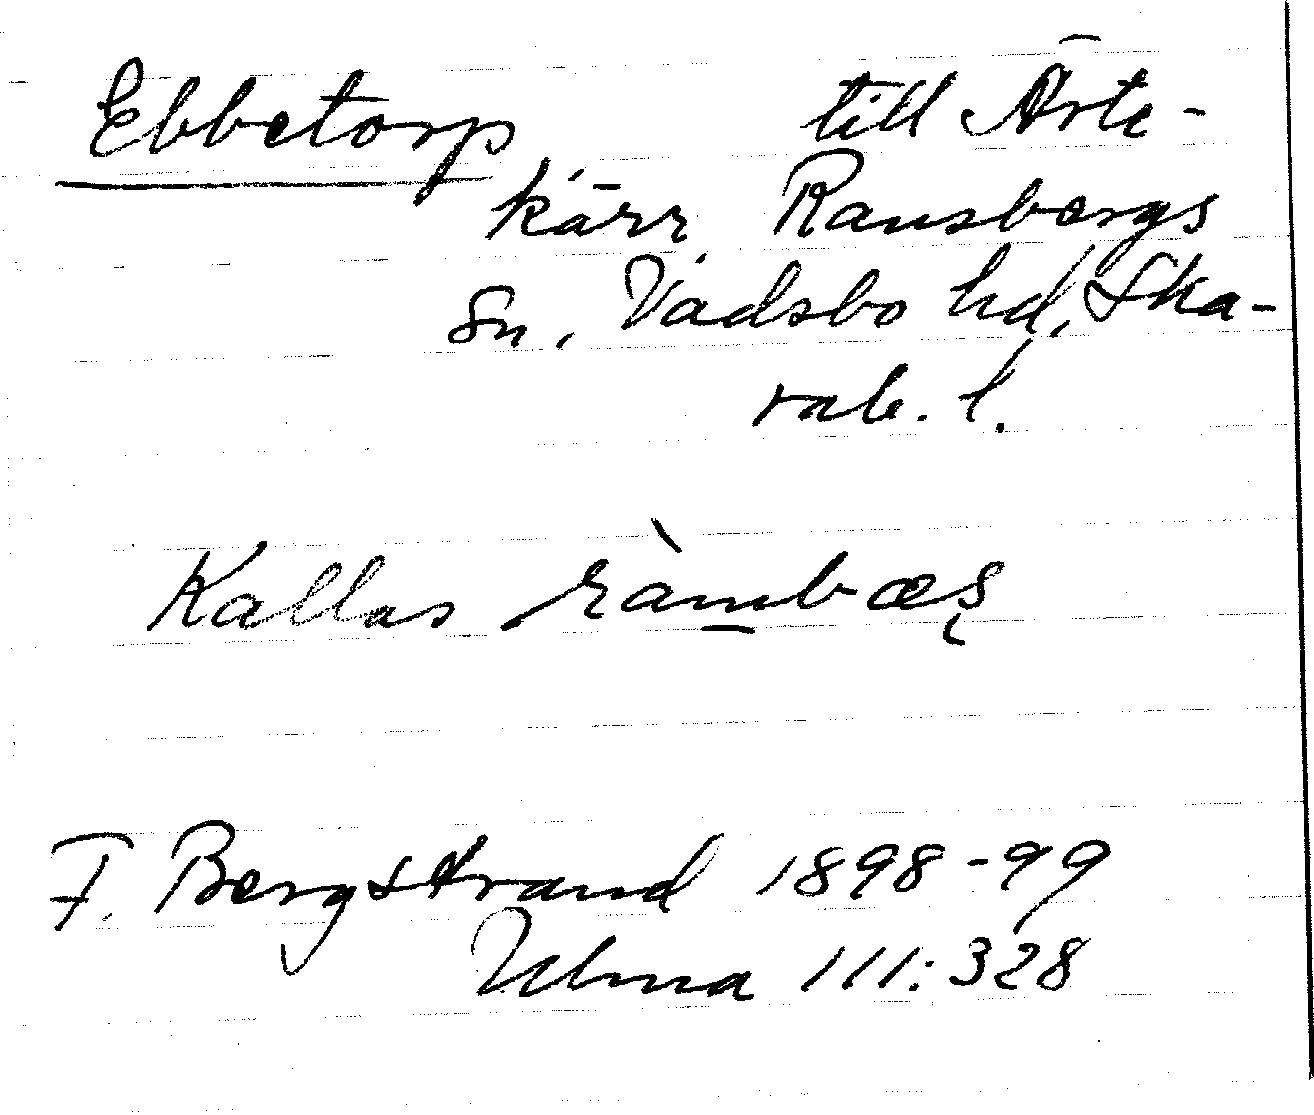 Ebbetorp till Ärte-
kärr, Ransbergs
Sn. Vadsbo hd, Ska-
rab. l.
Kallas ràmbæȿ
F. Bergstrand 1898-99
Ulma 111:328